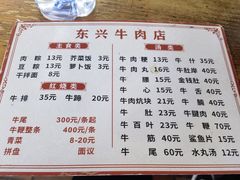 东兴牛肉店
主食类
肉粽 13元 芥菜饭 3元
豆粽 13元 萝卜饭 3元
干拌面 8元
红烧类
牛排 35元 牛蹄 20元
牛尾 300元/条起
牛鞭整条 400元/条
青菜 8-20元
拼盘 面议
汤类
牛肉粳 13元 牛什 35元
牛肉丸 16元 牛肚岸 40元
牛腰 15元 金钱肚 40元
牛心 15元 牛舌 40元
牛肉炕块 21元 牛肚 40元
牛肚 23元 牛腱肉 40元
牛百叶 23元 牛鞭 70元
牛筋 40元 鲨鱼片 15元
牛尾 60元 水丸汤 12元